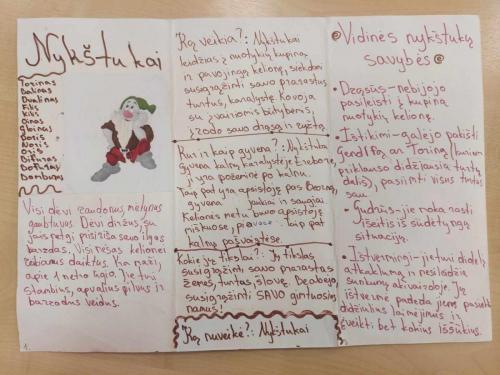 Nykštukai
Torinas
Balinas
Dvalinas
Filis
Kilis
Oinas
Gloinas
Doris
Noris
Oris
Bifuras
Bofuras
Bomburas
Visi dėvi raudonus, mėlynus
gobtuvus. Dėvi diržus, su
jais netgi
savo ilgas
barzdas. Visi neša, kelionei
daiktus. Yra maži,
apie 1 metro ūgio. Jie turi
stambius, apvalius pilvus ir
barzdotus veidus.
1.
Ką veikia?: Nykštukai
leidžias į nuotykių kupiną
ir pavojingą kelionę, siekdami
susigrąžinti savo prarastus
turtus, karalystę. Kovoja
su įvairiomis būtybėmis
įrodo savo drąsą ir ryžtą.
Kur ir kaip gyvena?: Nykštukai
gyvena kalnų karalystėje Ereboro,
t.y. po žeminė po kalnu.
Taip pat yra apsistoję pas Beorną,
gyvena jaukiai ir saugiai.
Kelionės metu buvo apsistoję
miškuose, pievose taip pat
kalnų pašvaistėse.
Kokie jų tikslai?: Jų tikslas
susigrąžinti savo prarastas
žemes, turtus, šlovę. Be abejo,
susigrąžinti SAVO gimtuosius
namus!
Ką nuveikė?: Nykštukai
Vidinės nykštukų
savybės
• Drąsūs - nebijojo
pasileisti į kupiną
nuotykių kelionę.
• Ištikimi - galėjo pakišti
Gendlfą ar Toriną (kuriem
priklauso didžiausia turtų
dalis), pasiimti visus turtus
sau.
• Gudrūs - jie moka rasti
išeitis iš sudėtingų
situacijų.
• Ištvermingi - jie turi didelę
atkaklumą ir nesileidžia
sunkumų akivaizdoje. Jų
ištvermė padeda jiems pasiekti
didžiulius laimėjimus ir
įveikti bet kokius iššūkius.